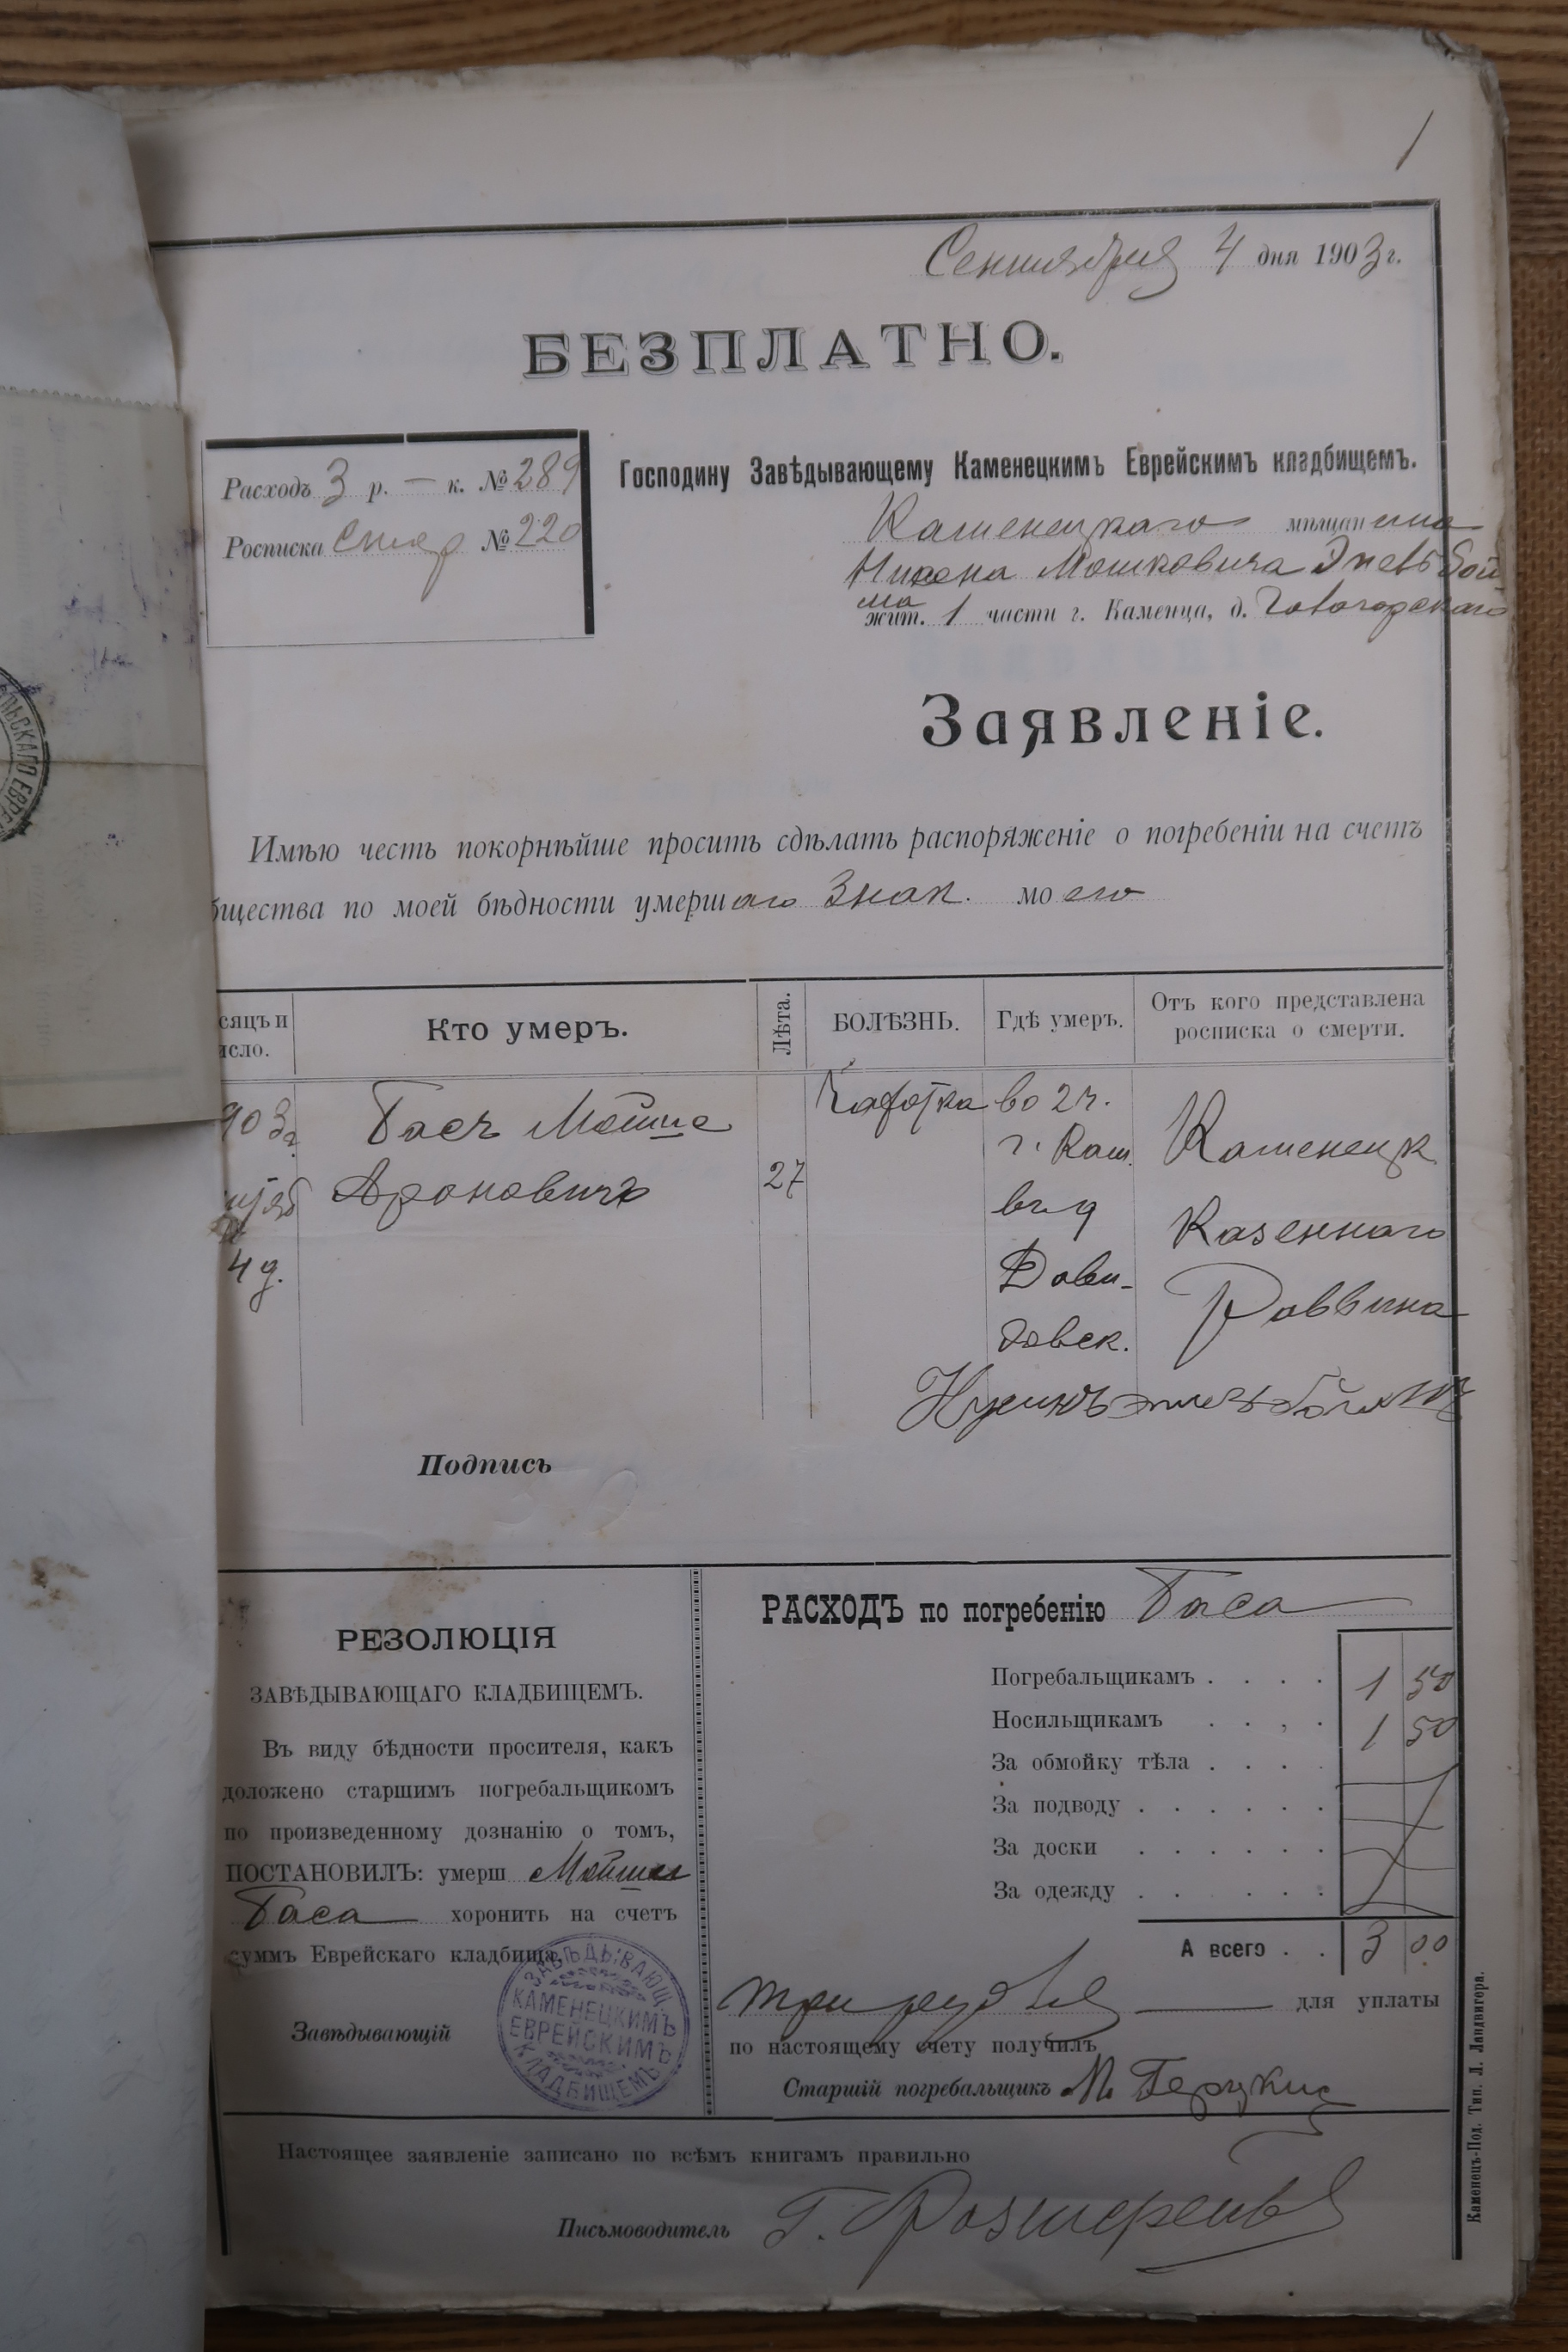 1
Сентября 4 дня 1903 г.
БЕЗПЛАТНО.
Расходъ 3 р. — к. № 289
Росписка стар № 220
Господину Завѣдывающему Каменецкимъ Еврейскимъ кладбищемъ.
Каменецкаго мѣщанина
Мошковича
жит. 1 части г. Каменца, д.
Заявленіе.
Имѣю честь покорнѣйше просить сдѣлать распоряженіе о погребеніи на счетъ
бщества по моей бѣдности умершаго Знак. моего
сяцъ и
исло.
Кто умеръ.
Лѣта.
БОЛѢЗНЬ.
Гдѣ умеръ.
Отъ кого представлена
росписка о смерти.
903 г.
4 д.
Басъ Мойше
Ароновичъ
27
Чахотка
во 2 ч.
г. Кам.
въ д
Дави-
довск.
Каменецк
Казеннаго
Раввина
Подпись
РЕЗОЛЮЦІЯ
ЗАВѢДЫВАЮЩАГО КЛАДБИЩЕМЪ.
Въ виду бѣдности просителя, какъ
доложено старшимъ погребальщикомъ
по произведенному дознанію о томъ,
ПОСТАНОВИЛЪ: умерш
Баса хоронить на счетъ
суммъ Еврейскаго кладбища.
Завѣдывающій
ЗАВѢДЫВАЮЩ.
КАМЕНЕЦКИМЪ
ЕВРЕЙСКИМЪ
КЛАДБИЩЕМЪ
РАСХОДЪ по погребенію Баса
Погребальщикамъ . . . . 1 50
Носильщикамъ . . , . 1 50
За обмойку тѣла . . . .
За подводу . . . . . .
За доски . . . . . .
За одежду . . . . . .
А всего . . 3 00
три рубля для уплаты
по настоящему счету получилъ
Старшій погребальщикъ М.
Настоящее заявленіе записано по всѣмъ книгамъ правильно
Письмоводитель Г.
Каменецъ-Под. Тип. Л. Ландвигера.
ЛЬСКАГО ЕВРЕ